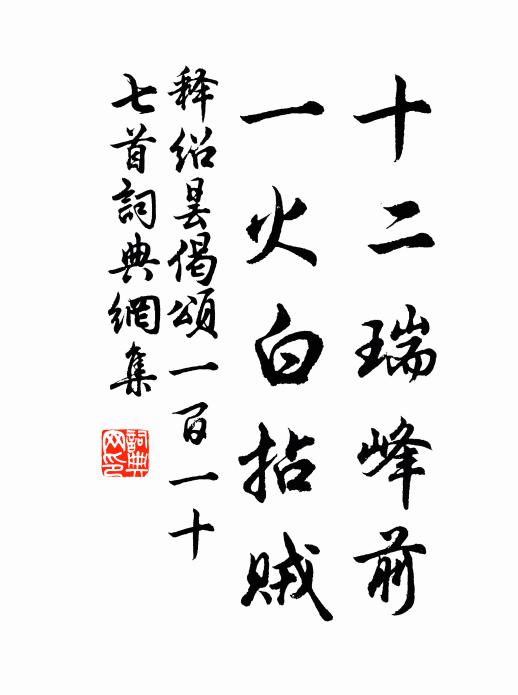 十二瑞峰前
一火白拈賊
释绍昙偈頌一百一十
七首詞典網集
詞典
网印